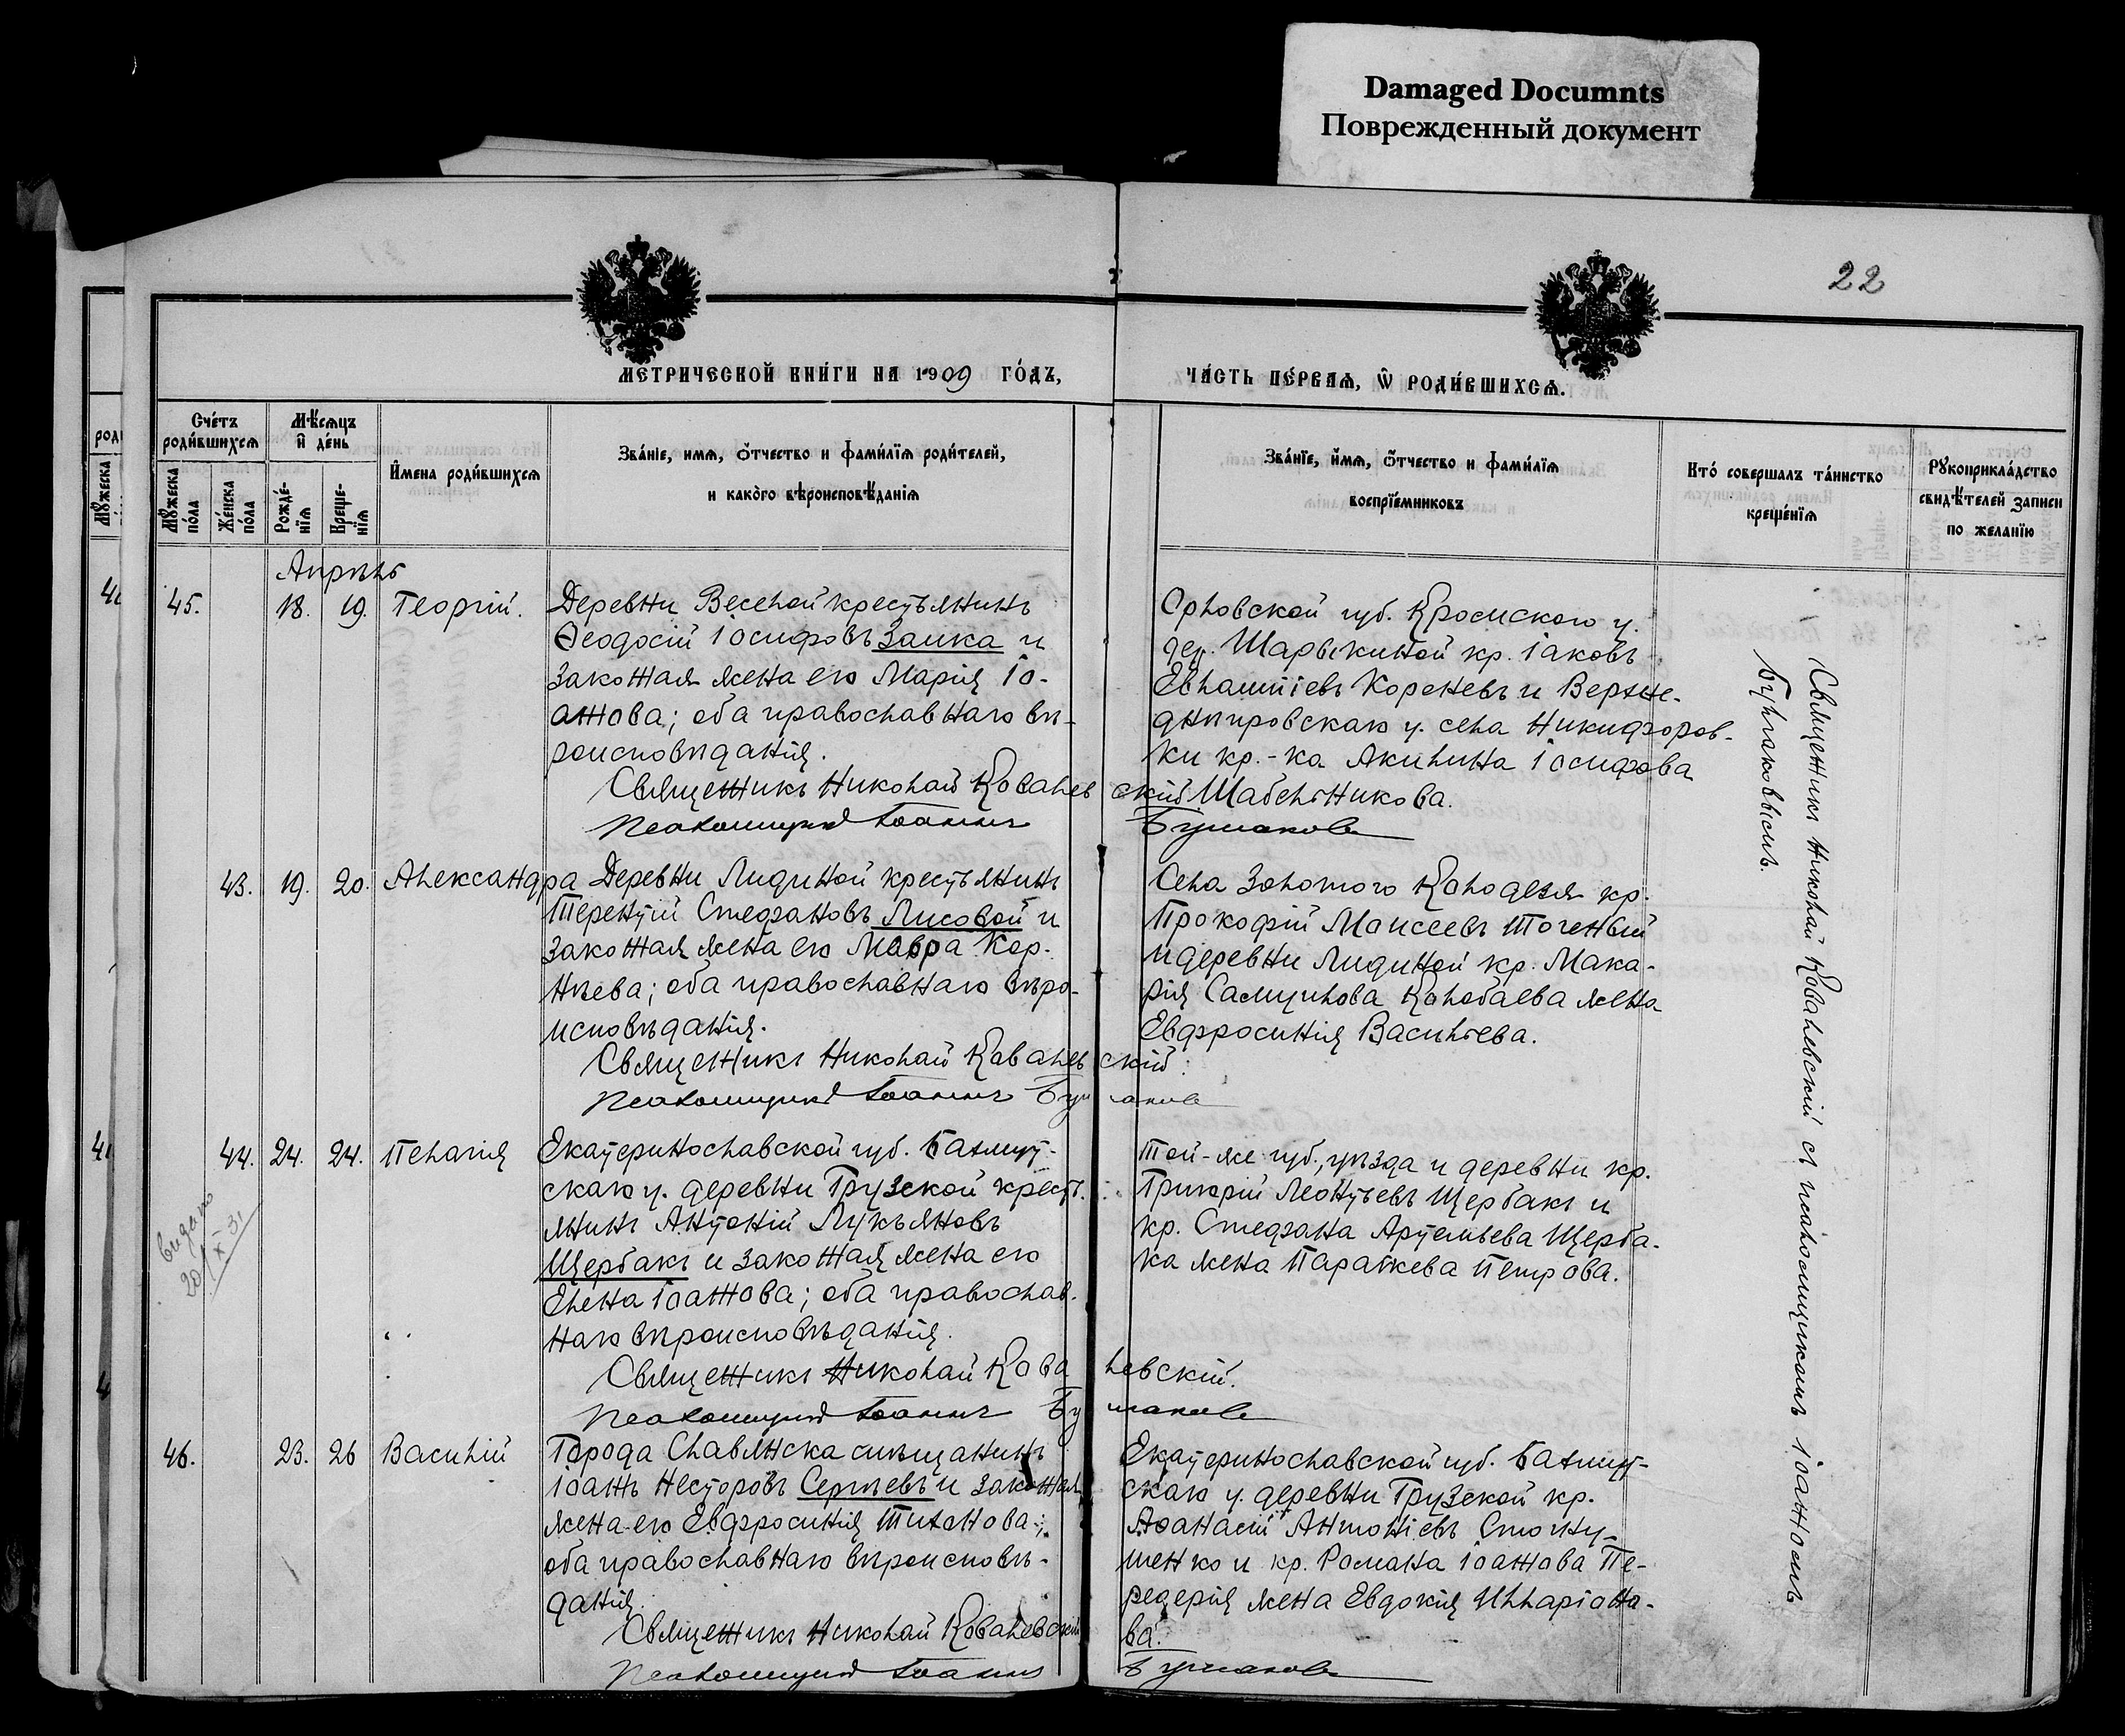 Damaged Documnts
Поврежденный документ
22
МЕТРИЧЕСКОЙ КНИ́ГИ НА 1909 ГО́ДЪ,
ЧА́СТЬ ПЕ́РВАѦ, Ѡ҆ РОДИ́ВШИХСѦ.
Сче́тъ роди́вшихсѧ
Мѣ́сѧцъ и҆ де́нь
И҆мена роди́вшихсѧ
Зва́нїе, имѧ, ѻ҆́тчество и фами́лїѧ роди́телей,
и како́го вѣроисповѣ́данїѧ
Мꙋ́жеска по́ла
Же́нска по́ла
Рожде́-нїѧ
Креще-нїѧ
Зва́нїе, и҆́мѧ, ѻ҆́тчество и фами́лїѧ
воспрїе́мниковъ
Кто́ соверша́лъ та́инство
креще́нїѧ
Рꙋкоприкла́дство
свидѣ́телей записи
по желанїю
Апрѣль
45. 18. 19. Георгій.
Деревни Веселой крестьянинъ
Ѳеодосій Іосифовъ Заика и
законная жена его Марія Іо-
аннова; оба православнаго вѣ-
роисповѣданія.
Священникъ Николай Ковалевскій
Псаломщикъ Іоаннъ Булгаковъ
Орловской губ. Кромскаго у.
дер. Шарыкиной кр. Іаковъ
Евлампіевъ Кореневъ и Верхне-
днѣпровскаго у. села Никифоров-
ки кр.-ка Акилина Іосифова
Шабельникова.
43. 19. 20. Александра
Деревни Лидиной крестьянинъ
Терентій Стефановъ Лисовой и
законная жена его Мавра Кор-
нѣева; оба православнаго вѣро-
исповѣданія.
Священникъ Николай Ковалевскій.
Псаломщикъ Іоаннъ Булгаковъ
Села Золотого Колодезя кр.
Прокофій Моисеевъ Точеный
и деревни Лидиной кр. Мака-
рія Самуилова Колобаева жена
Евфросинія Васильева.
44. 24. 24. Пелагія
видано
20/IX 31
Екатеринославской губ. Бахмут-
скаго у. деревни Грузской кресть-
янинъ Антоній Лукьяновъ
Щербакъ и законная жена его
Елена Іоаннова; оба православ-
наго вѣроисповѣданія.
Священникъ Николай Ковалевскій.
Псаломщикъ Іоаннъ Булгаковъ
Той-же губ., уѣзда и деревни кр.
Григорій Леонтьевъ Щербакъ и
кр. Стефана Артемьева Щерба-
ка жена Параскева Петрова.
46. 23. 26 Василій
Города Славянска мѣщанинъ
Іоаннъ Несторовъ Сергѣевъ и законная
жена его Евфросинія Тихонова;
оба православнаго вѣроисповѣ-
данія.
Священникъ Николай Ковалевскій
Псаломщикъ Іоаннъ Булгаковъ
Екатеринославской губ. Бахмут-
скаго у. деревни Грузской кр.
Аѳанасій Антоніевъ
и кр. Романа Іоаннова Пе-
редерія жена Евдокія Илларіоно-
ва.
Священникъ Николай Ковалевскій съ псаломщикомъ Іоанномъ
Булгаковымъ.